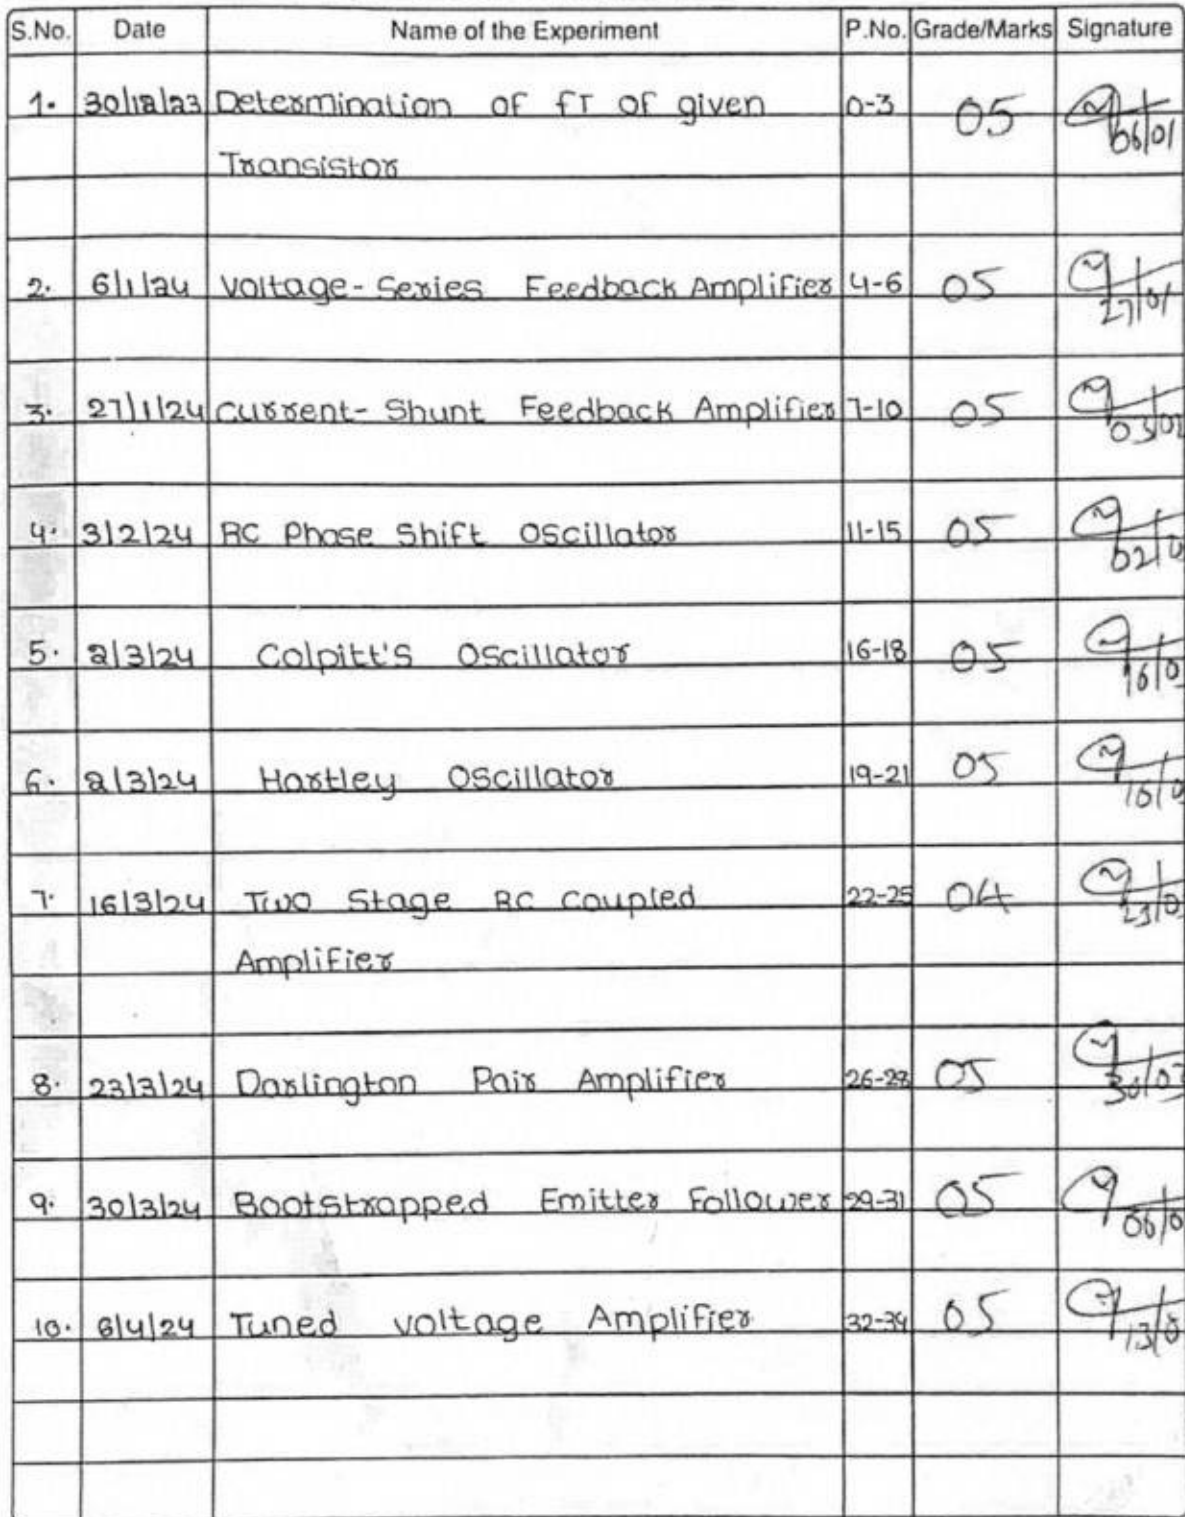 S.No. Date Name of the Experiment P.No. Grade/Marks Signature
1. 30/12/23 Determination of fT of given 0-3 05 06/01
Transistor
2. 6/1/24 Voltage-Series Feedback Amplifier 4-6 05 27/01
3. 27/1/24 Current-Shunt Feedback Amplifier 7-10 05 03/02
4. 3/2/24 RC Phase Shift Oscillator 11-15 05 02/0
5. 2/3/24 Colpitt's Oscillator 16-18 05 16/0
6. 2/3/24 Hartley Oscillator 19-21 05 16/0
7. 16/3/24 Two Stage RC Coupled 22-25 04
Amplifier
8. 23/3/24 Darlington Pair Amplifier 26-28 05 30/03
9. 30/3/24 Bootstrapped Emitter Follower 29-31 05 06/0
10. 6/4/24 Tuned voltage Amplifier 32-34 05 13/0